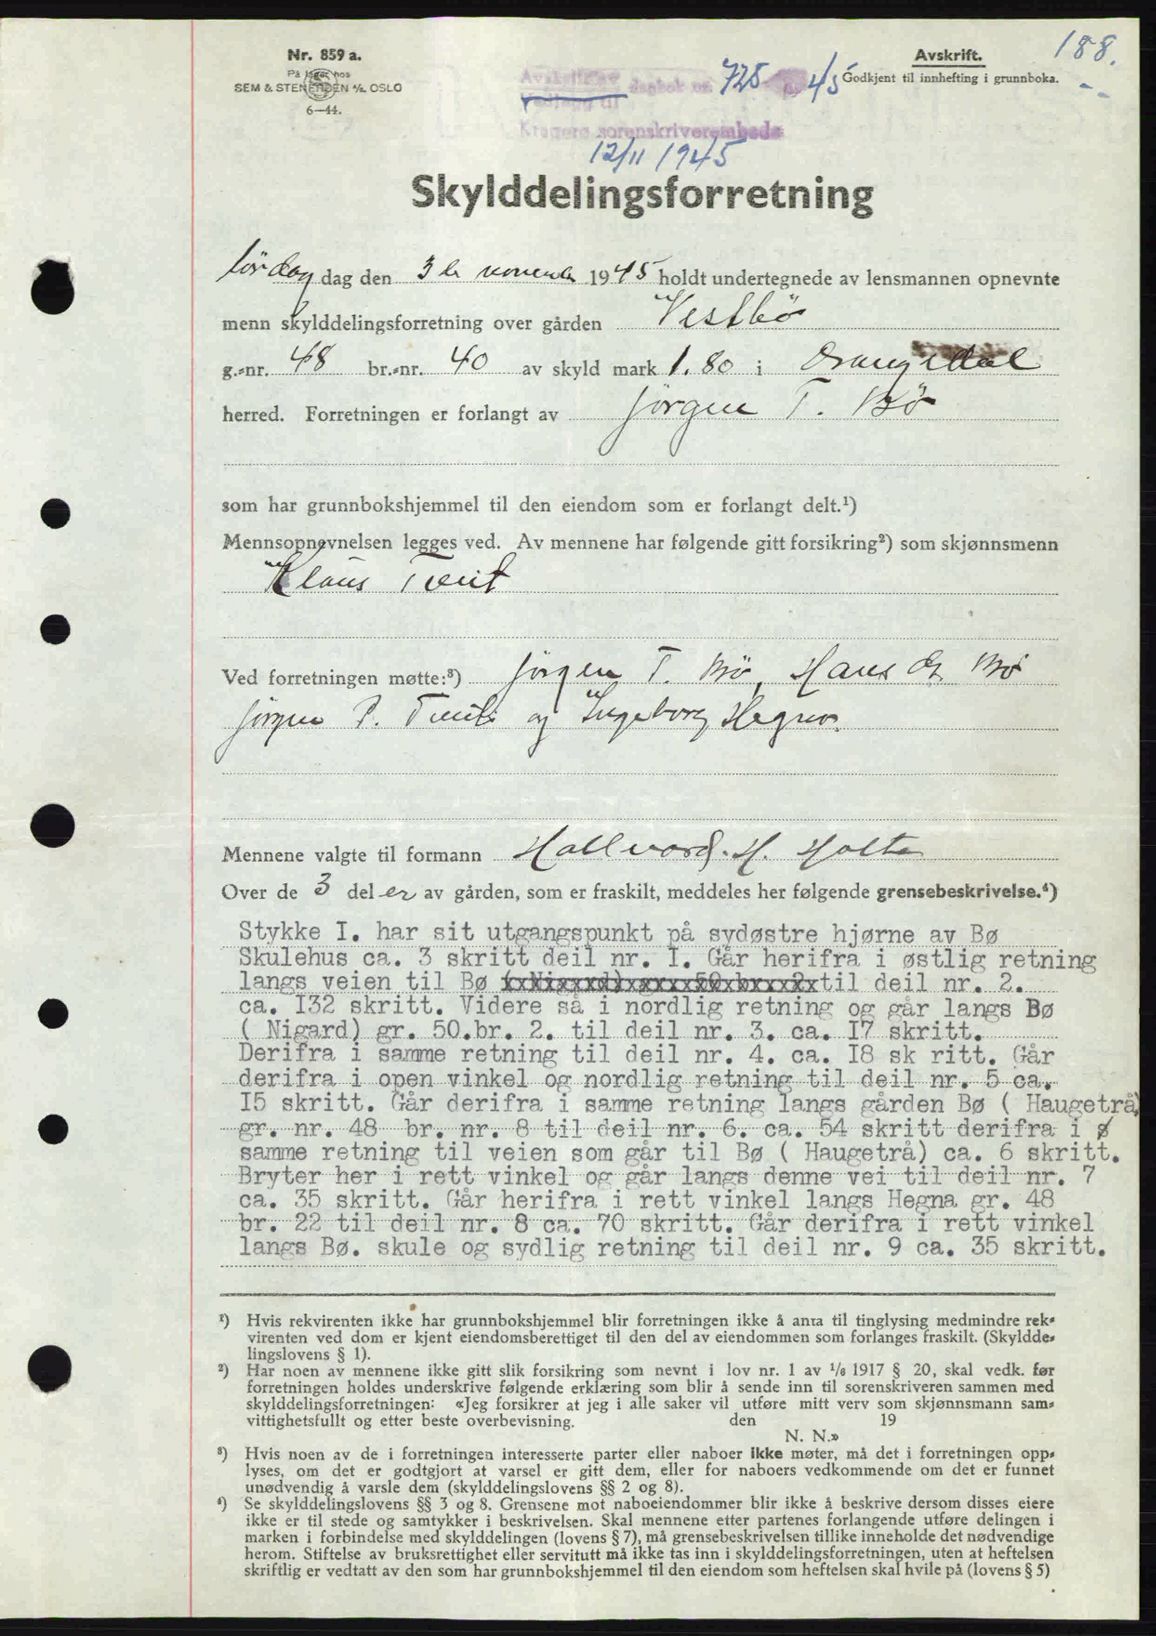 188.
Nr. 859 a.
På lager hos
SEM & STENERSEN A/S, OSLO
6—44.
Avskrift.
Godkjent til innhefting i grunnboka.
Vedlegg til dagbok nr. 725 45
Kragerø sorenskriverembede
12/11 1945
Skylddelingsforretning
lördag dag den 3de november 1945 holdt undertegnede av lensmannen opnevnte
menn skylddelingsforretning over gården Vestbö
g.-nr. 48 br.-nr. 40 av skyld mark 1.80 i Drangedal
herred. Forretningen er forlangt av Jörgen T. Bö
som har grunnbokshjemmel til den eiendom som er forlangt delt.¹)
Mennsopnevnelsen legges ved. Av mennene har følgende gitt forsikring²) som skjønnsmenn
Klaus Tveit
Ved forretningen møtte:³) Jörgen T. Bö, Hans Bö
Jörgen P. og Ingeborg Hegna
Mennene valgte til formann Hallvard H. Holte
Over de 3 deler av gården, som er fraskilt, meddeles her følgende grensebeskrivelse.⁴)
Stykke I. har sit utgangspunkt på sydøstre hjørne av Bø
Skulehus ca. 3 skritt deil nr. I. Går herifra i østlig retning
langs veien til Bø (xxNigxxrd)xgrxxx50xbrxxx2x til deil nr. 2.
ca. I32 skritt. Videre så i nordlig retning og går langs Bø
( Nigard) gr. 50.br. 2. til deil nr. 3. ca. I7 skritt.
Derifra i samme retning til deil nr. 4. ca. I8 sk ritt. Går
derifra i open vinkel og nordlig retning til deil nr. 5 ca.
I5 skritt. Går derifra i samme retning langs gården Bø ( Haugetrå)
gr. nr. 48 br. nr. 8 til deil nr. 6. ca. 54 skritt derifra i ø
samme retning til veien som går til Bø ( Haugetrå) ca. 6 skritt.
Bryter her i rett vinkel og går langs denne vei til deil nr. 7
ca. 35 skritt. Går herifra i rett vinkel langs Hegna gr. 48
br. 22 til deil nr. 8 ca. 70 skritt. Går derifra i rett vinkel
langs Bø. skule og sydlig retning til deil nr. 9 ca. 35 skritt.
¹) Hvis rekvirenten ikke har grunnbokshjemmel blir forretningen ikke å anta til tinglysing medmindre rek-
virenten ved dom er kjent eiendomsberettiget til den del av eiendommen som forlanges fraskilt. (Skyldde-
lingslovens § 1).
²) Har noen av mennene ikke gitt slik forsikring som nevnt i lov nr. 1 av ¹/₆ 1917 § 20, skal vedk. før
forretningen holdes underskrive følgende erklæring som blir å sende inn til sorenskriveren sammen med
skylddelingsforretningen: «Jeg forsikrer at jeg i alle saker vil utføre mitt verv som skjønnsmann sam-
vittighetsfullt og etter beste overbevisning. den 19
N. N.»
³) Hvis noen av de i forretningen interesserte parter eller naboer ikke møter, må det i forretningen opp-
lyses, om det er godtgjort at varsel er gitt dem, eller for naboers vedkommende om det er funnet
unødvendig å varsle dem (skylddelingslovens §§ 2 og 8).
⁴) Se skylddelingslovens §§ 3 og 8. Grensene mot naboeiendommer blir ikke å beskrive dersom disses eiere
ikke er til stede og samtykker i beskrivelsen. Skal mennene etter partenes forlangende utføre delingen i
marken i forbindelse med skylddelingen (lovens § 7), må grensebeskrivelsen tillike inneholde det nødvendige
herom. Stiftelse av bruksrettighet eller servitutt må ikke tas inn i skylddelingsforretningen, uten at heftelsen
skriftlig er vedtatt av den som har grunnbokshjemmel til den eiendom som heftelsen skal hvile på (lovens § 5)